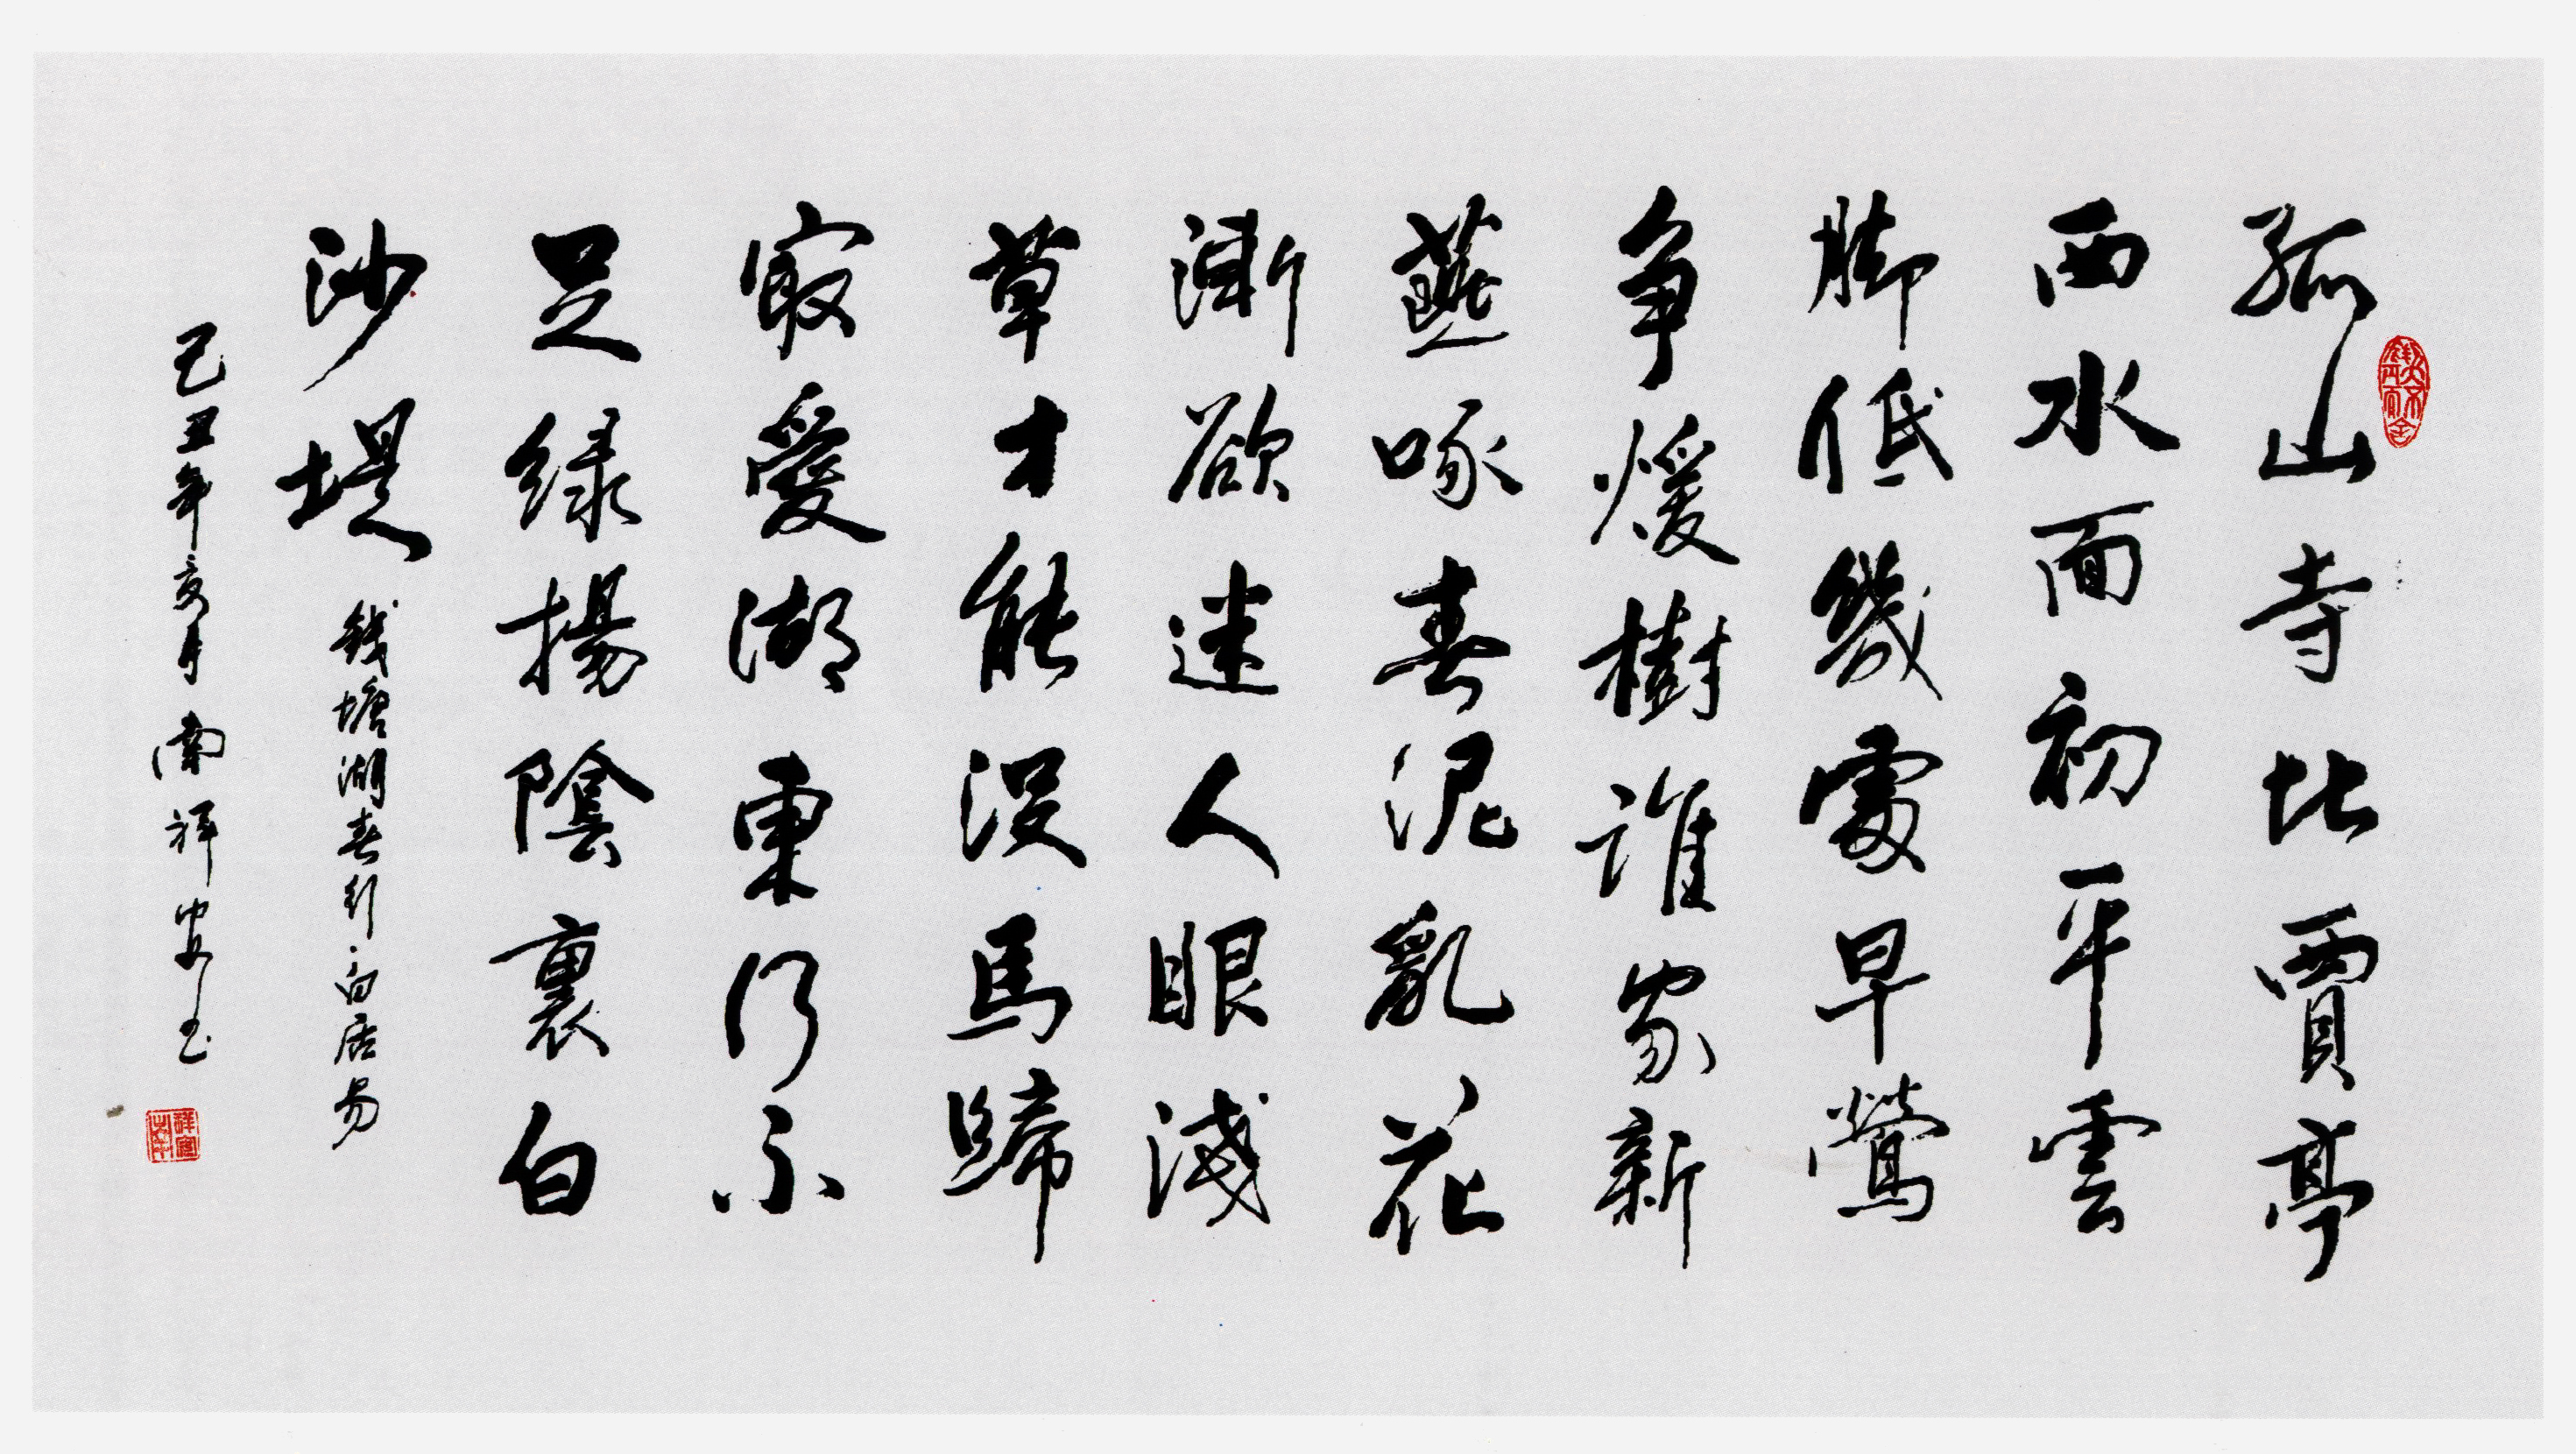 孤山寺北賈亭
西水面初平雲
脚低幾處早鶯
争煖樹誰家新
燕啄春泥亂花
漸欲迷人眼淺
草才能没馬蹄
㝡愛湖東行不
足緑揚陰裏白
沙堤
钱塘湖春行·白居易
己丑年亥月南祥安书